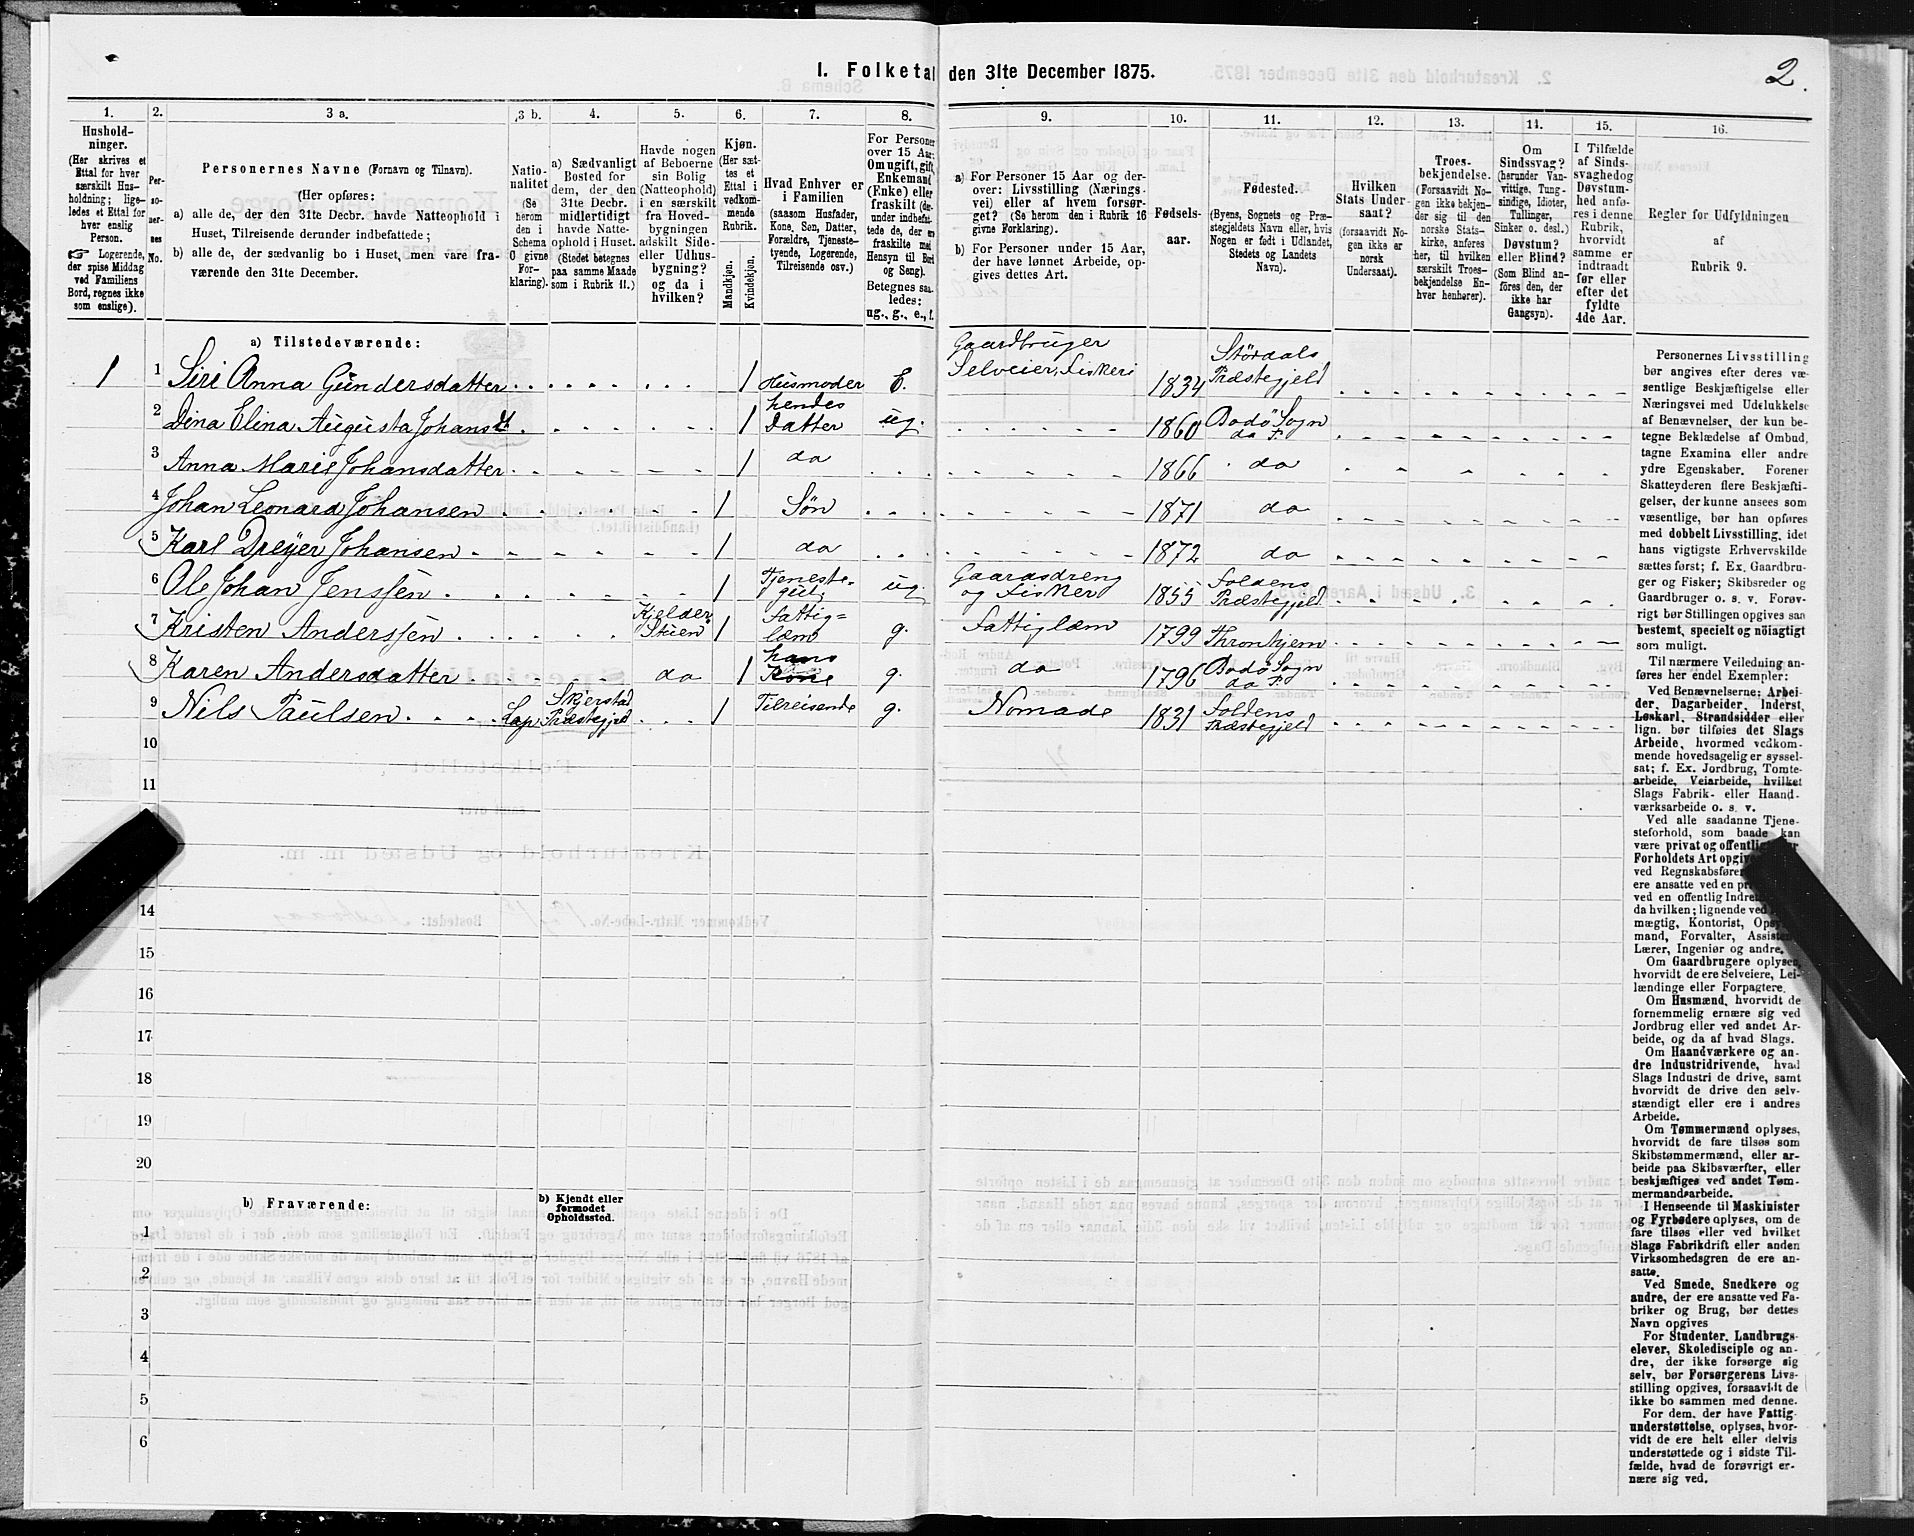 I. Folketal den 31te December 1875.
2.
1. 2. 3 a. 3 b. 4. 5. 6. 7. 8. 9. 10. 11. 12. 13. 14. 15. 16.
Hushold-
ninger.
(Her skrives et
Ettal for hver
særskilt Hus-
holdning; lige-
ledes et Ettal for
hver enslig
Person.
☞ Logerende,
der spise Middag
ved Familiens
Bord, regnes ikke
som enslige).
Per-
so-
ner-
nes
No.
Personernes Navne (Fornavn og Tilnavn).
(Her opføres:
a) alle de, der den 31te Decbr. havde Natteophold i
Huset, Tilreisende derunder indbefattede;
b) alle de, der sædvanlig bo i Huset, men vare fra-
værende den 31te December.
Natio-
nalitet
(Se
herom
den i
Schema
O givne
For-
klaring).
a) Sædvanligt
Bosted for
dem, der den
31te Decbr.
midlertidigt
havde Natte-
ophold i Huset.
(Stedet betegnes
paa samme Maade
som i Rubrik 11.)
Havde nogen
af Beboerne
sin Bolig
(Natteophold)
i en særskilt
fra Hoved-
bygningen
adskilt Side-
eller Udhus-
bygning?
og da i
hvilken?
Kjøn.
(Her sæt-
tes et
Ettal i
vedkom-
mende
Rubrik.
Mandkjøn.
Kvindekjøn.
Hvad Enhver er
i Familien
(saasom Husfader,
Kone, Søn, Datter,
Forældre, Tjeneste-
tyende, Logerende,
Tilreisende osv.)
For Personer
over 15 Aar:
Omugift, gift,
Enkemand
(Enke) eller
fraskilt (der-
under indbefat-
tede de, der ere
fraskilte med
Hensyn til Bord
og Seng).
Betegnes saa-
ledes:
ug., g., e., f.
a) For Personer 15 Aar og der-
over: Livsstilling (Nærings-
vei) eller af hvem forsør-
get? (Se herom den i Rubrik 16
givne Forklaring).
b) For Personer under 15 Aar,
der have lønnet Arbeide, op-
gives dettes Art.
Fødsels-
aar.
Fødested.
(Byens, Sognets og Præ-
stegjeldets Navn eller, hvis
Nogen er født i Udlandet,
Stedets og Landets
Navn).
Hvilken
Stats Under-
saat?
(forsaavidt No-
gen ikke er
norsk
Undersaat).
Troes-
bekjendelse.
(Forsaavidt No-
gen ikke bekjen-
der sig til den
norske Stats-
kirke, anføres
her, til hvilken
særskilt Troes-
bekjendelse En-
hver henhører).
Om
Sindssvag?
(herunder Van-
vittige, Tung-
sindige, Idioter,
Tullinger,
Sinker o. desl.)
Døvstum?
eller Blind?
(Som Blind an-
føres den, der
ikke har
Gangsyn).
I Tilfælde
af Sinds-
svaghedog
Døvstum-
hed anfø-
res i denne
Rubrik,
hvorvidt
samme er
indtraadt
før eller
efter det
fyldte
4de Aar.
Regler for Udfyldningen
af
Rubrik 9.
a) Tilstedeværende:
1 1 Siri Anna Gundersdatter 1 Husmoder E. Gaardbruger Selveier, Fiskeri 1834 Stördals Præstegjeld
2 Dina Elina Augusta Johansd 1 hendes Datter ug. 1860 Bodø Sogn do P.
3 Anna Marie Johansdatter 1 do 1866 do
4 Johan Leonard Johansen 1 Søn 1871 do
5 Karl Dreyer Johansen 1 do 1872 do
6 Ole Johan Jenssen 1 Tjeneste-gut. ug. Gaardsdreng og Fisker 1855 Foldens Præstegjeld
7 Kristen Anderssen Kjelder Stuen 1 Fattig=læm g. Fattiglæm 1799 Thronhjem
8 Karen Andersdatter do 1 hans Kone g. do 1796 Bodø Sogn do P.
9 Nils Paulsen Lap Skjerstad Præstegjeld 1 Tilreisende g. Nomade 1831 Foldens Præstegjeld
10
11
14
15
16
17
18
19
20
b) Fraværende:
b) Kjendt eller
formodet
Opholdssted.
1
2
3
4
5
6
Personernes Livsstilling
bør angives efter deres væ-
sentlige Beskjæftigelse eller
Næringsvei med Udelukkelse
af Benævnelser, der kun be-
tegne Beklædelse af Ombud,
tagne Examina eller andre
ydre Egenskaber. Forener
Skatteyderen flere Beskjæfti-
gelser, der kunne ansees som
væsentlige, bør han opføres
med dobbelt Livsstilling, idet
hans vigtigste Erhvervskilde
sættes først; f. Ex. Gaardbru-
ger og Fisker; Skibsreder og
Gaardbruger o. s. v. Forøv-
rigt bør Stillingen opgives saa
bestemt, specielt og nøiagtigt
som muligt.
Til nærmere Veiledning an-
føres her endel Exempler:
Ved Benævnelserne: Arbei-
der, Dagarbeider, Inderst,
Løskarl, Strandsidder eller
lign. bør tilføies det Slags
Arbeide, hvormed vedkom-
mende hovedsagelig er syssel-
sat; f. Ex. Jordbrug, Tomte-
arbeide, Veiarbeide, hvilket
Slags Fabrik- eller Haand-
værksarbeide o. s. v.
Ved alle saadanne Tjene-
steforhold, som baade kan
være privat og offentlig,
Forholdets Art opgives
ved Regnskabsfører
ere ansatte ved en
ved en offentlig
da hvilken; lignende ved
mægtig, Kontorist,
mand, Forvalter,
Lærer, Ingeniør og andre.
Om Gaardbrugere oplyses,
hvorvidt de ere Selveiere, Lei-
lændinge eller Forpagtere.
Om Husmænd, hvorvidt de
fornemmelig ernære sig ved
Jordbrug eller ved andet Ar-
beide, og da af hvad Slags.
Om Haandværkere og an-
dre Industridrivende, hvad
Slags Industri de drive, samt
hvorvidt de drive den selv-
stændigt eller ere i andres
Arbeide.
Om Tømmermænd oplyses,
hvorvidt de fare tilsøs som
Skibstømmermænd, eller ar-
beide paa Skibsværfter, eller
beskjæftiges ved andet Tøm-
mermandsarbeide.
I Henseende til Maskinister
og Fyrbødere oplyses, om de
fare tilsøs eller ved hvilket
Slags Fabrikdrift eller anden
Virksomhedsgren de ere an-
satte.
Ved Smede, Snedkere og
andre, der ere ansatte ved Fa-
briker og Brug, bør dettes
Navn opgives
For Studenter, Landbrugs-
elever, Skoledisciple og an-
dre, der ikke forsørge sig
selv, bør Forsørgerens Livs-
stilling opgives, forsaavidt de
ikke bo sammen med denne.
For dem, der have Fattig-
understøttelse, oplyses, hvor-
vidt de ere helt eller delvis
understøttede og i sidste Til-
fælde, hvad de forøvrigt er-
nære sig ved.